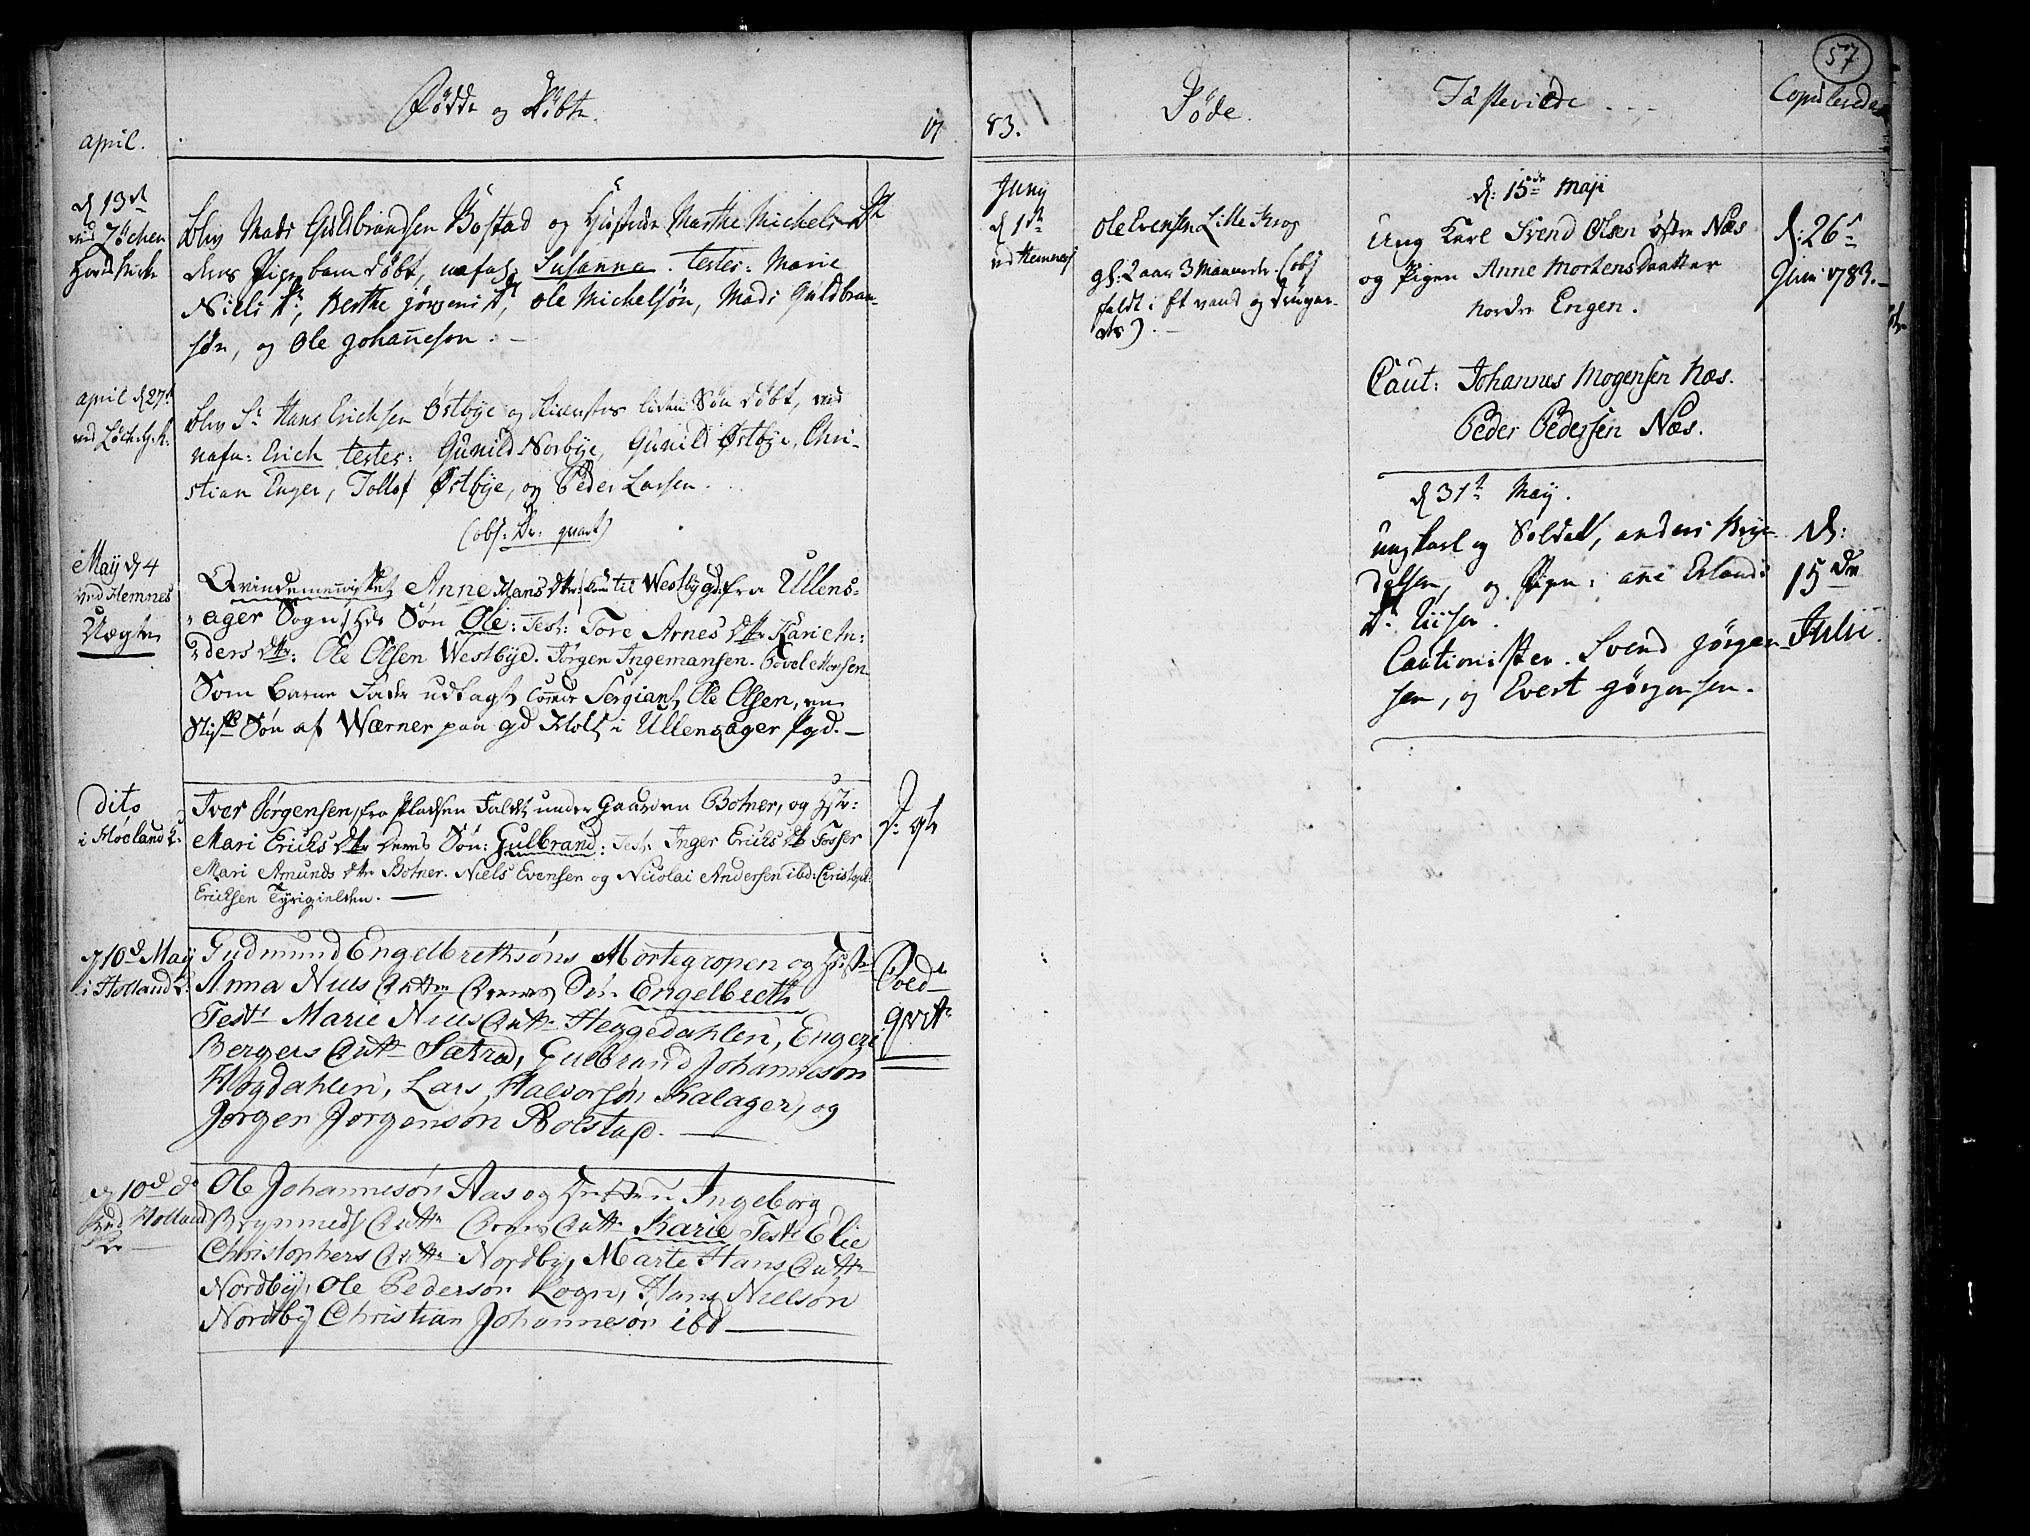 Fødde og Døbte.
17
april.
d 13de
ved
Kirke
blev Mads Guldbrandsen Bøstad og Hustrue Marthe Michels Dr
deres Pige barn døbt, nafnl: Susanna. testes: Marie
Niels dr, Berthe Jørgens dr, Ole Michelsøn, Mads Guldbran-
søn, og Ole Johannesøn. —
april d 27de
ved
blev Sr Hans Erichsen Østbye og Kierestes liden Søn døbt, ved
nafn: Erich testes: Gunild Norbye, Gunild Østbye, Chri-
stian Enger, Tollef Østbye, og Peder Larsen.
(obs: qvart)
May d 4
ved Hemnes
Uægte
Qvindemennisket Anne Hans Dtr: kom til Westby gd: fra Ullens-
ager Sogn Hds Søn Ole: Test: Tore Arnes Dtr Kari An:
ders dtr: Ole Olsen Westbye. Jørgen Ingemansen. Povel Monsen
Som Barne Fader udlagt Sergiant Ole Olsen, en
Søn af Wærner paa gd Holt i Ullensager Pgd. —
dito
i Høeland K.
Iver Jørgensen, fra Pladsen Faldet under Gaarden Botner, og Hstr:
Mari Ericks Dtr Deres Søn: Gulbrand: Test: Inger Ericks Dtr Fosser
Mari Amunds dtr Botner. Niels Evensen og Nicolai Andersen ibd: Christoph:
Ericksen Tyrigielden. —
d 10de May
i Holland K:
Gudmund Engelbrethsøns Mortegropen og Hustr
Anna Niels Dattr Deres Søn Engelbreth
Test: Marie Niels Dattr Heggedahlen, Engeri
Bergers Dattr Sætra, Gulbrand Johannesøn
Høgdahlen, Lars Halvorsøn Kalager, og
Jørgen Jørgensøn Bolstad. —
qvit
d 10de do
ved Holland
Ole Johannesøn Aas og Hustrue Ingeborg
Brynnels Dattr Deres Dattr Karie Test: Elie
Christophers Dattr Nordby, Marte Hans Dattr
Nordby, Ole Pedersøn Kogn, Hans Nielsøn
Nordby Christian Johannesøn ibd —
57
83.
Døde.
Juny
d 1de
ved Hemnes
Ole Evensen Lille Krog
gl: 2 aar 3 Maaneder. (obs
faldt i et vand og drugne-
des). —
Fæstevilde ---
d: 15de Maji
Ung Karl Svend Olsen østre Næs
og Pigen Anne Mortens Daatter
nordre Engen.
Caut: Johannes Mogensen Næs.
Peder Pedersen Næs.
d 31te May.
ung Karl og Soldat, anders Bryn-
delsen, og Pigen: ane Erlands
Cautionister. Svend Jørgen-
sen, og Evert Jørgensen.
Copulerede
d: 26de
Juni 1783. —
d:
15den
Julii.